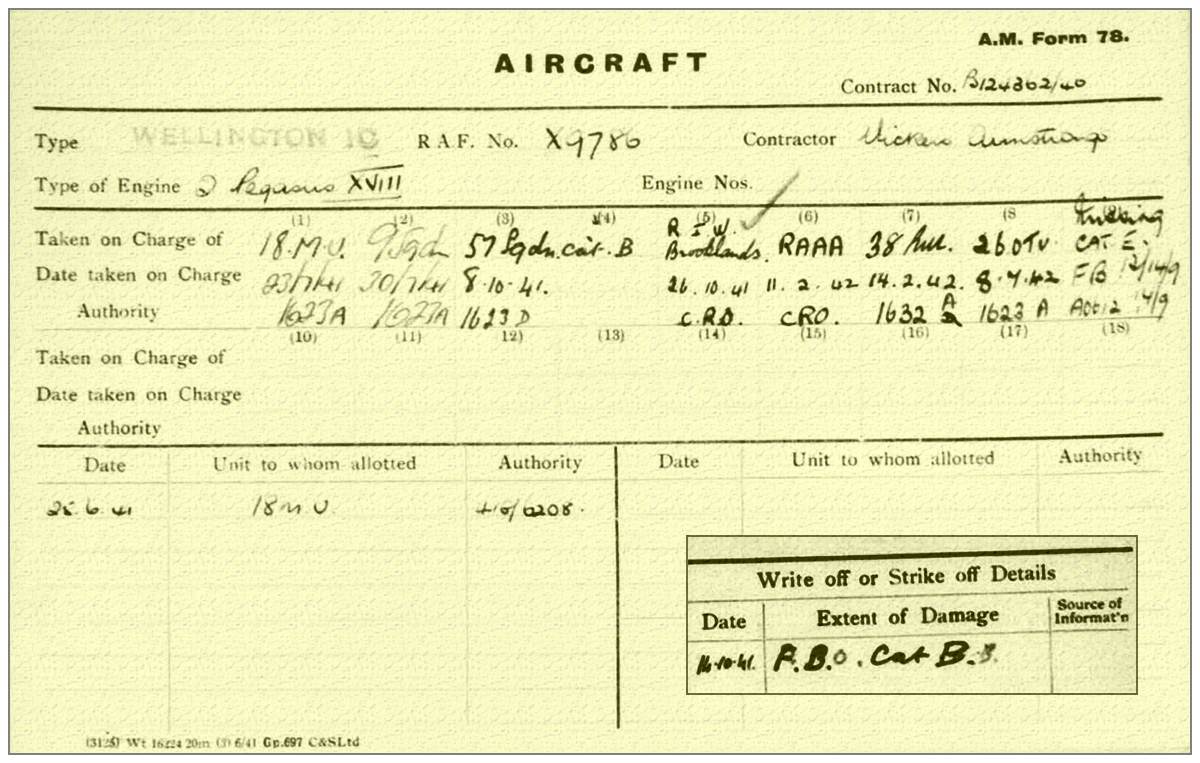 A.M. Form 78.
AIRCRAFT
Contract No. B124362/40
Type WELLINGTON IC R.A.F. No. X9786 Contractor Vickers Armstrongs
Type of Engine 2 Pegasus XVIII Engine Nos.
(1) (2) (3) (4) (5) (6) (7) (8
R I W. Missing
Taken on Charge of 18.M.U. 9 Sqdn 57 Sqdn. cat. B Brooklands. RAAA 38 MU. 26 OTU. CAT E.
Date taken on Charge 23/7/41 30/7/41 8.10.41. 26.10.41 11.2.42 14.2.42. 8.7.42 FB 12/14/9
Authority 1623A 1623A 1623D C.RO. CRO. 1632 A 1623 A 14/9
(10) (11) 12) (13) (14) (15) (16) (17) (18)
Taken on Charge of
Date taken on Charge
Authority
Date Unit to whom allotted Authority Date Unit to whom allotted Authority
25.6.41 18 M U.
Write off or Strike off Details
Date Extent of Damage Source of Informat'n
14.10.41. F.B.O. Cat B.
(3125) Wt 16224 20m (3) 6/41 Gp.697 C&SLtd